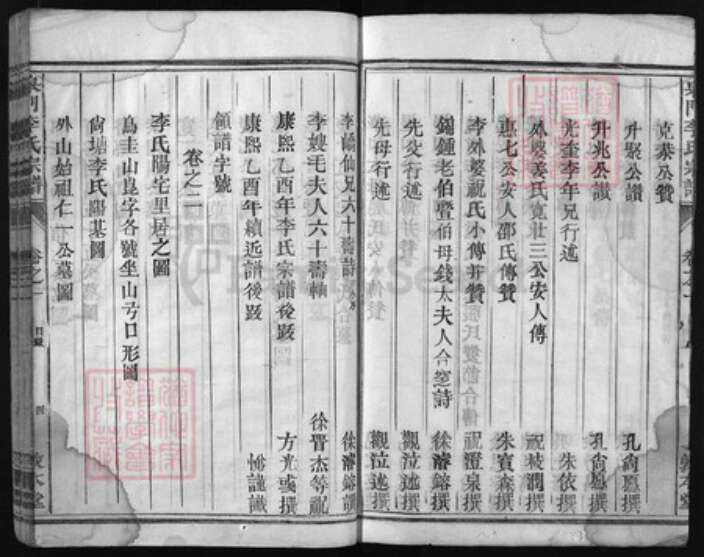 克恭公贊
升聚公讚 孔尚愿撰
升兆公讚 孔尚愿撰
光奎李年兄行述 朱依撰
外婆姜氏寬壯三公安人傳 祝裝潤撰
惠七公安人邵氏傳贊 朱寶森撰
李外婆祝氏小傳并贊 祝澄泉撰
錢太夫人合窆詩 徐濬鎔撰
先父行述 觀泣述撰
先母行述 觀泣述撰
李嵛仙兄六十壽詩 徐濬鎔撰
李嫂毛夫人六十壽軸 徐晋杰等祝
康熙乙酉年李氏宗譜後跋 方光彧撰
康熙乙酉年續近譜後跋
領譜字號
卷之二
李氏陽宅里居之圖
烏圭山崑字各號坐山亏口形圖
尚塘李氏陽基圖
外山始祖仁一公墓圖
李氏宗譜
卷之一
目錄
四
敦本堂